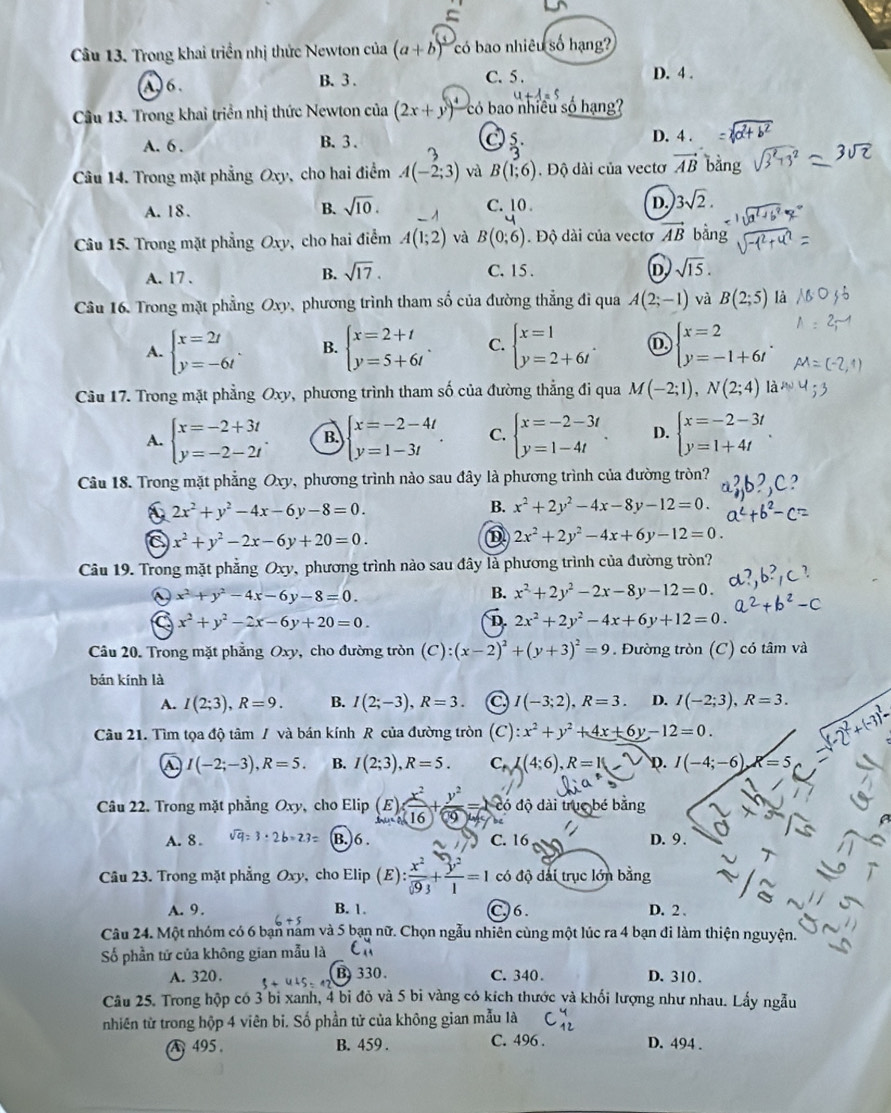 Câu 13. Trong khai triển nhị thức Newton của (a + b)⁵ có bao nhiêu số hạng?
A. 6. B. 3. C. 5. D. 4.
4+1=5
Câu 13. Trong khai triển nhị thức Newton của (2x + y)⁴ có bao nhiêu số hạng?
A. 6. B. 3. C. 5. D. 4. = √a²+b²
3 3
Câu 14. Trong mặt phẳng Oxy, cho hai điểm A(−2;3) và B(1;6). Độ dài của vectơ AB bằng √3²+3² = 3√2
A. 18. B. √10. C. 10. D. 3√2.
-1 4
Câu 15. Trong mặt phẳng Oxy, cho hai điểm A(1;2) và B(0;6). Độ dài của vectơ AB bằng √-1²+4² =
A. 17. B. √17. C. 15. D. √15.
Câu 16. Trong mặt phẳng Oxy, phương trình tham số của đường thẳng đi qua A(2;−1) và B(2;5) là AB 0;6
A. {x = 2t y = −6t. B. {x = 2 + t y = 5 + 6t. C. {x = 1 y = 2 + 6t. D. {x = 2 y = −1 + 6t. A = 2;-1
M = (-2,1)
Câu 17. Trong mặt phẳng Oxy, phương trình tham số của đường thẳng đi qua M(−2;1), N(2;4) là 4;3
A. {x = −2 + 3t y = −2 − 2t. B. {x = −2 − 4t y = 1 − 3t. C. {x = −2 − 3t y = 1 − 4t. D. {x = −2 − 3t y = 1 + 4t.
Câu 18. Trong mặt phẳng Oxy, phương trình nào sau đây là phương trình của đường tròn? a?, b?, C?
A. 2x² + y² − 4x − 6y − 8 = 0. B. x² + 2y² − 4x − 8y − 12 = 0. a²+b²-C=
C. x² + y² − 2x − 6y + 20 = 0. D. 2x² + 2y² − 4x + 6y − 12 = 0.
Câu 19. Trong mặt phẳng Oxy, phương trình nào sau đây là phương trình của đường tròn? a?, b?, C?
A. x² + y² − 4x − 6y − 8 = 0. B. x² + 2y² − 2x − 8y − 12 = 0. a²+b²-C
C. x² + y² − 2x − 6y + 20 = 0. D. 2x² + 2y² − 4x + 6y + 12 = 0.
Câu 20. Trong mặt phẳng Oxy, cho đường tròn (C):(x − 2)² + (y + 3)² = 9. Đường tròn (C) có tâm và
bán kính là
A. I(2;3), R = 9. B. I(2;−3), R = 3. C. I(−3;2), R = 3. D. I(−2;3), R = 3.
Câu 21. Tìm tọa độ tâm I và bán kính R của đường tròn (C): x² + y² + 4x + 6y − 12 = 0.
A. I(−2;−3), R = 5. B. I(2;3), R = 5. C. I(4;6), R = 1 D. I(−4;−6), R = 5
chia -2
Câu 22. Trong mặt phẳng Oxy, cho Elip (E): x²/16 + y²/9 = 1 có độ dài trục bé bằng
A. 8. √9 = 3 · 2b = 2.3 = B. 6. C. 16 D. 9.
Câu 23. Trong mặt phẳng Oxy, cho Elip (E): x²/9 + y²/1 = 1 có độ dài trục lớn bằng
A. 9. B. 1. C. 6. D. 2.
6+5
Câu 24. Một nhóm có 6 bạn nam và 5 bạn nữ. Chọn ngẫu nhiên cùng một lúc ra 4 bạn đi làm thiện nguyện.
Số phần tử của không gian mẫu là C⁴₁₁
A. 320. B. 330. C. 340. D. 310.
3+4+5=12
Câu 25. Trong hộp có 3 bi xanh, 4 bi đỏ và 5 bi vàng có kích thước và khối lượng như nhau. Lấy ngẫu
nhiên từ trong hộp 4 viên bi. Số phần tử của không gian mẫu là C⁴₁₂
A. 495. B. 459. C. 496. D. 494.